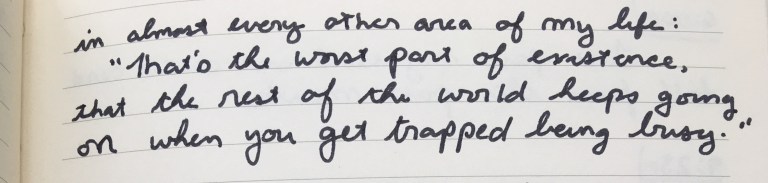 in almost every other area of my life:
"That's the worst part of existence,
that the rest of the world keeps going
on when you get trapped being busy."